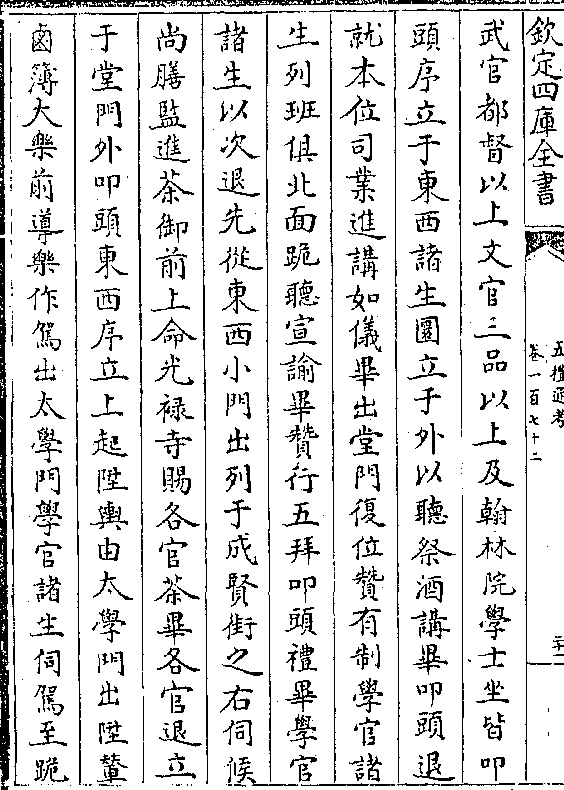 欽定四庫全書
五禮通考
卷一百七十二
二十一
武官都督以上文官三品以上及翰林院學士坐皆叩
頭序立于東西諸生圜立于外以聽祭酒講畢叩頭退
就本位司業進講如儀畢出堂門復位贊有制學官諸
生列班俱北面跪聽宣諭畢贊行五拜叩頭禮畢學官
諸生以次退先從東西小門出列于成賢街之右伺候
尚膳監進茶御前上命光禄寺賜各官茶畢各官退立
于堂門外叩頭東西序立上起陞輿由太學門出陞輦
鹵簿大樂前導樂作駕出太學門學官諸生伺駕至跪